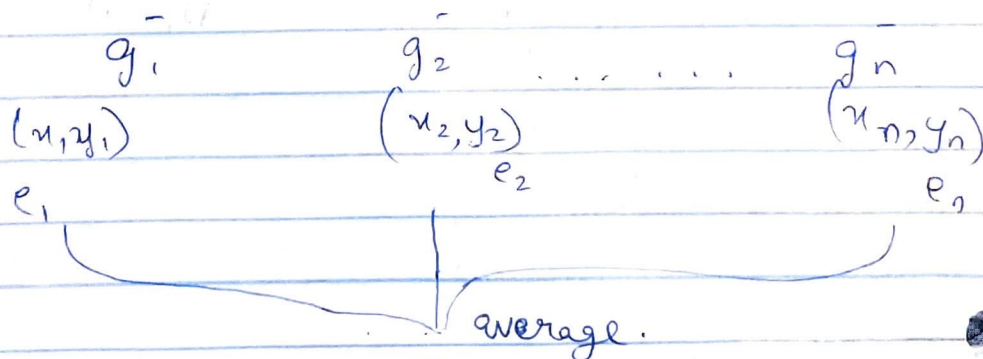 g₁⁻ g₂⁻ . . . . . . . gₙ⁻
(x₁y₁) (x₂,y₂) (xₙ,yₙ)
e₁ e₂ eₙ
average.